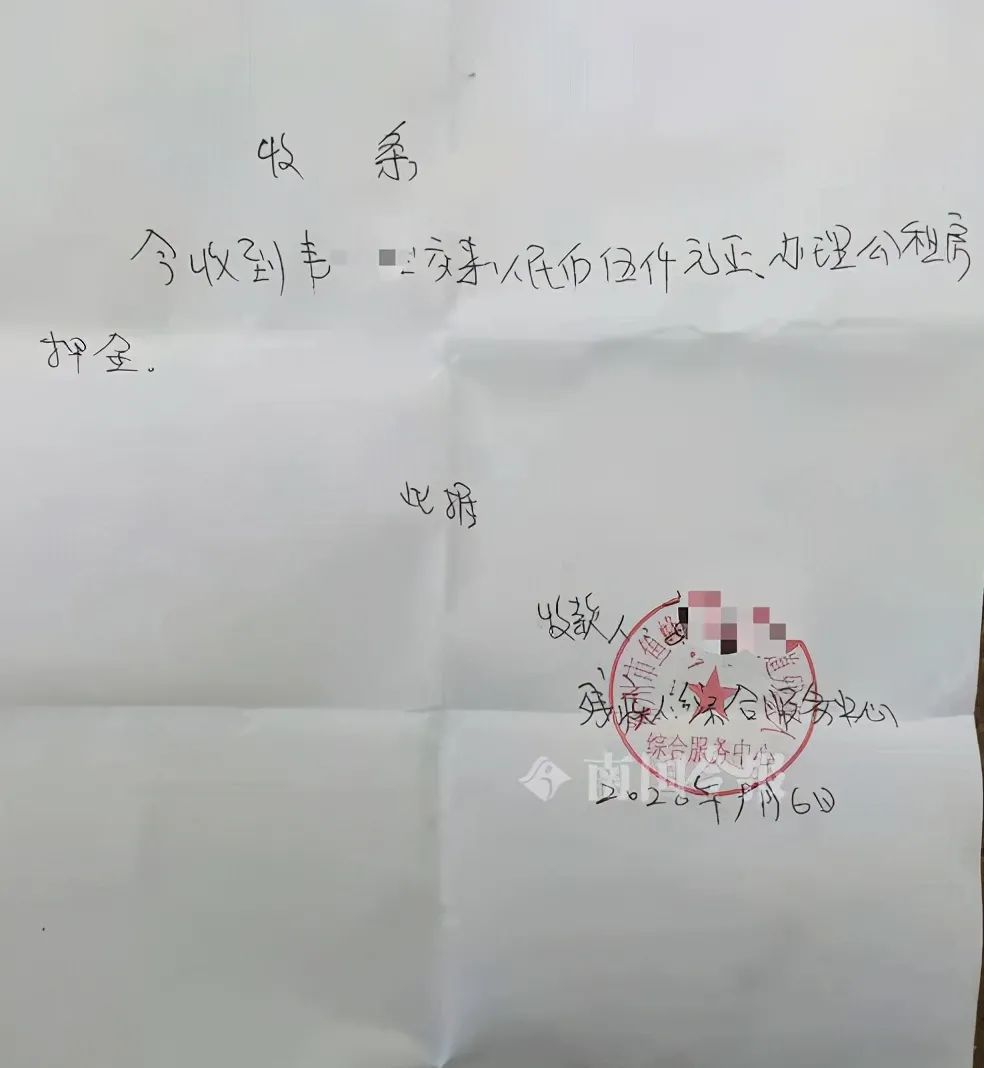 收 条
今收到韦 交来人民币伍仟元正、办理公租房
押金。
此据
收款人
市鱼 道
残疾人综合服务中心
综合服务中心
南国今报
2020年 月6日